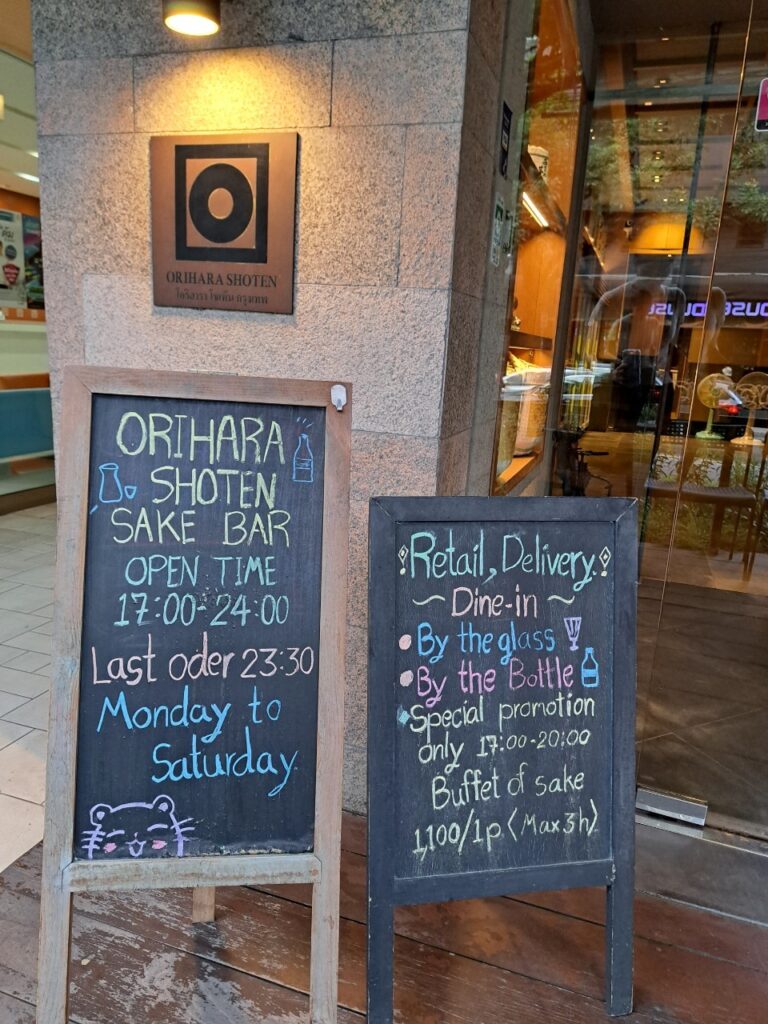 ORIHARA SHOTEN
โอริฮารา โชเต็น กรุงเทพ
ORIHARA
SHOTEN
SAKE BAR
OPEN TIME
17:00-24:00
Last oder 23:30
Monday to
Saturday
Retail, Delivery
~ Dine-in ~
By the glass
By the Bottle
Special promotion
only 17:00-20:00
Buffet of sake
1,100/1p (Max 3h)